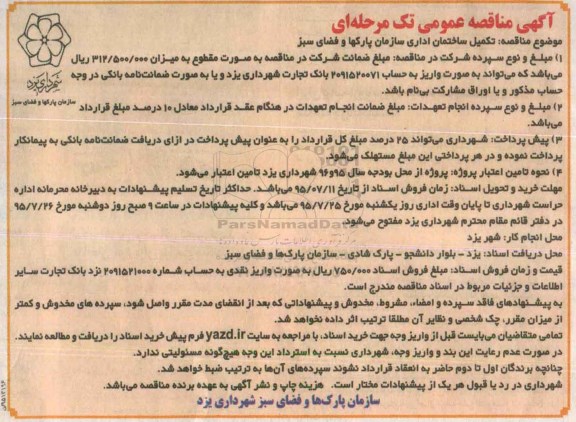 آگهی مناقصه عمومی تک مرحله‌ای
موضوع مناقصه: تکمیل ساختمان اداری سازمان پارکها و فضای سبز
۱) مبلغ و نوع سپرده شرکت در مناقصه: مبلغ ضمانت شرکت در مناقصه به صورت مقطوع به میزان ۳۱۲/۵۰۰/۰۰۰ ریال
می‌باشد که می‌تواند به صورت واریز به حساب ۲۰۹۱۵۲۰۰۷۱ بانک تجارت شهرداری یزد و یا به صورت ضمانت‌نامه بانکی در وجه
حساب مذکور و یا اوراق مشارکت بی‌نام باشد.
شهرداری یزد
سازمان پارکها و فضای سبز
۲) مبلغ و نوع سپرده انجام تعهدات: مبلغ ضمانت انجام تعهدات در هنگام عقد قرارداد معادل ۱۰ درصد مبلغ قرارداد
می‌باشد.
۳) پیش پرداخت: شهرداری می‌تواند ۲۵ درصد مبلغ کل قرارداد را به عنوان پیش پرداخت در ازای دریافت ضمانت‌نامه بانکی به پیمانکار
پرداخت نموده و در هر پرداختی این مبلغ مستهلک می‌شود.
۴) نحوه تامین اعتبار پروژه: پروژه از محل بودجه سال ۹۶و۹۵ شهرداری یزد تامین اعتبار می‌شود.
مهلت خرید و تحویل اسناد: زمان فروش اسناد از تاریخ ۹۵/۰۷/۱۱ می‌باشد. حداکثر تاریخ تسلیم پیشنهادات به دبیرخانه محرمانه اداره
حراست شهرداری تا پایان وقت اداری روز یکشنبه مورخ ۹۵/۷/۲۵ می‌باشد و کلیه پیشنهادات در ساعت ۹ صبح روز دوشنبه مورخ ۹۵/۷/۲۶
در دفتر قائم مقام محترم شهرداری یزد مفتوح می‌شود.
ParsNamadData
محل انجام کار: شهر یزد
محل دریافت اسناد: یزد - بلوار دانشجو - پارک شادی - سازمان پارک‌ها و فضای سبز
قیمت و زمان فروش اسناد: مبلغ فروش اسناد ۷۵۰/۰۰۰ ریال به صورت واریز نقدی به حساب شماره ۲۰۹۱۵۲۱۰۰۰ نزد بانک تجارت سایر
اطلاعات و جزئیات مربوط در اسناد مناقصه مندرج است.
به پیشنهادهای فاقد سپرده و امضاء، مشروط، مخدوش و پیشنهاداتی که بعد از انقضای مدت مقرر واصل شود، سپرده های مخدوش و کمتر
از میزان مقرر، چک شخصی و نظایر آن مطلقا ترتیب اثر داده نخواهد شد.
تمامی متقاضیان می‌بایست قبل از واریز وجه جهت خرید اسناد، با مراجعه به سایت yazd.ir فرم پیش خرید اسناد را دریافت و مطالعه نمایند.
در صورت عدم رعایت این بند و واریز وجه، شهرداری نسبت به استرداد این وجه هیچ‌گونه مسئولیتی ندارد.
چنانچه برندگان اول تا دوم حاضر به انعقاد قرارداد نشوند سپرده‌های آن‌ها به ترتیب ضبط خواهد شد.
شهرداری در رد یا قبول هر یک از پیشنهادات مختار است. هزینه چاپ و نشر آگهی به عهده برنده مناقصه می‌باشد.
سازمان پارک‌ها و فضای سبز شهرداری یزد